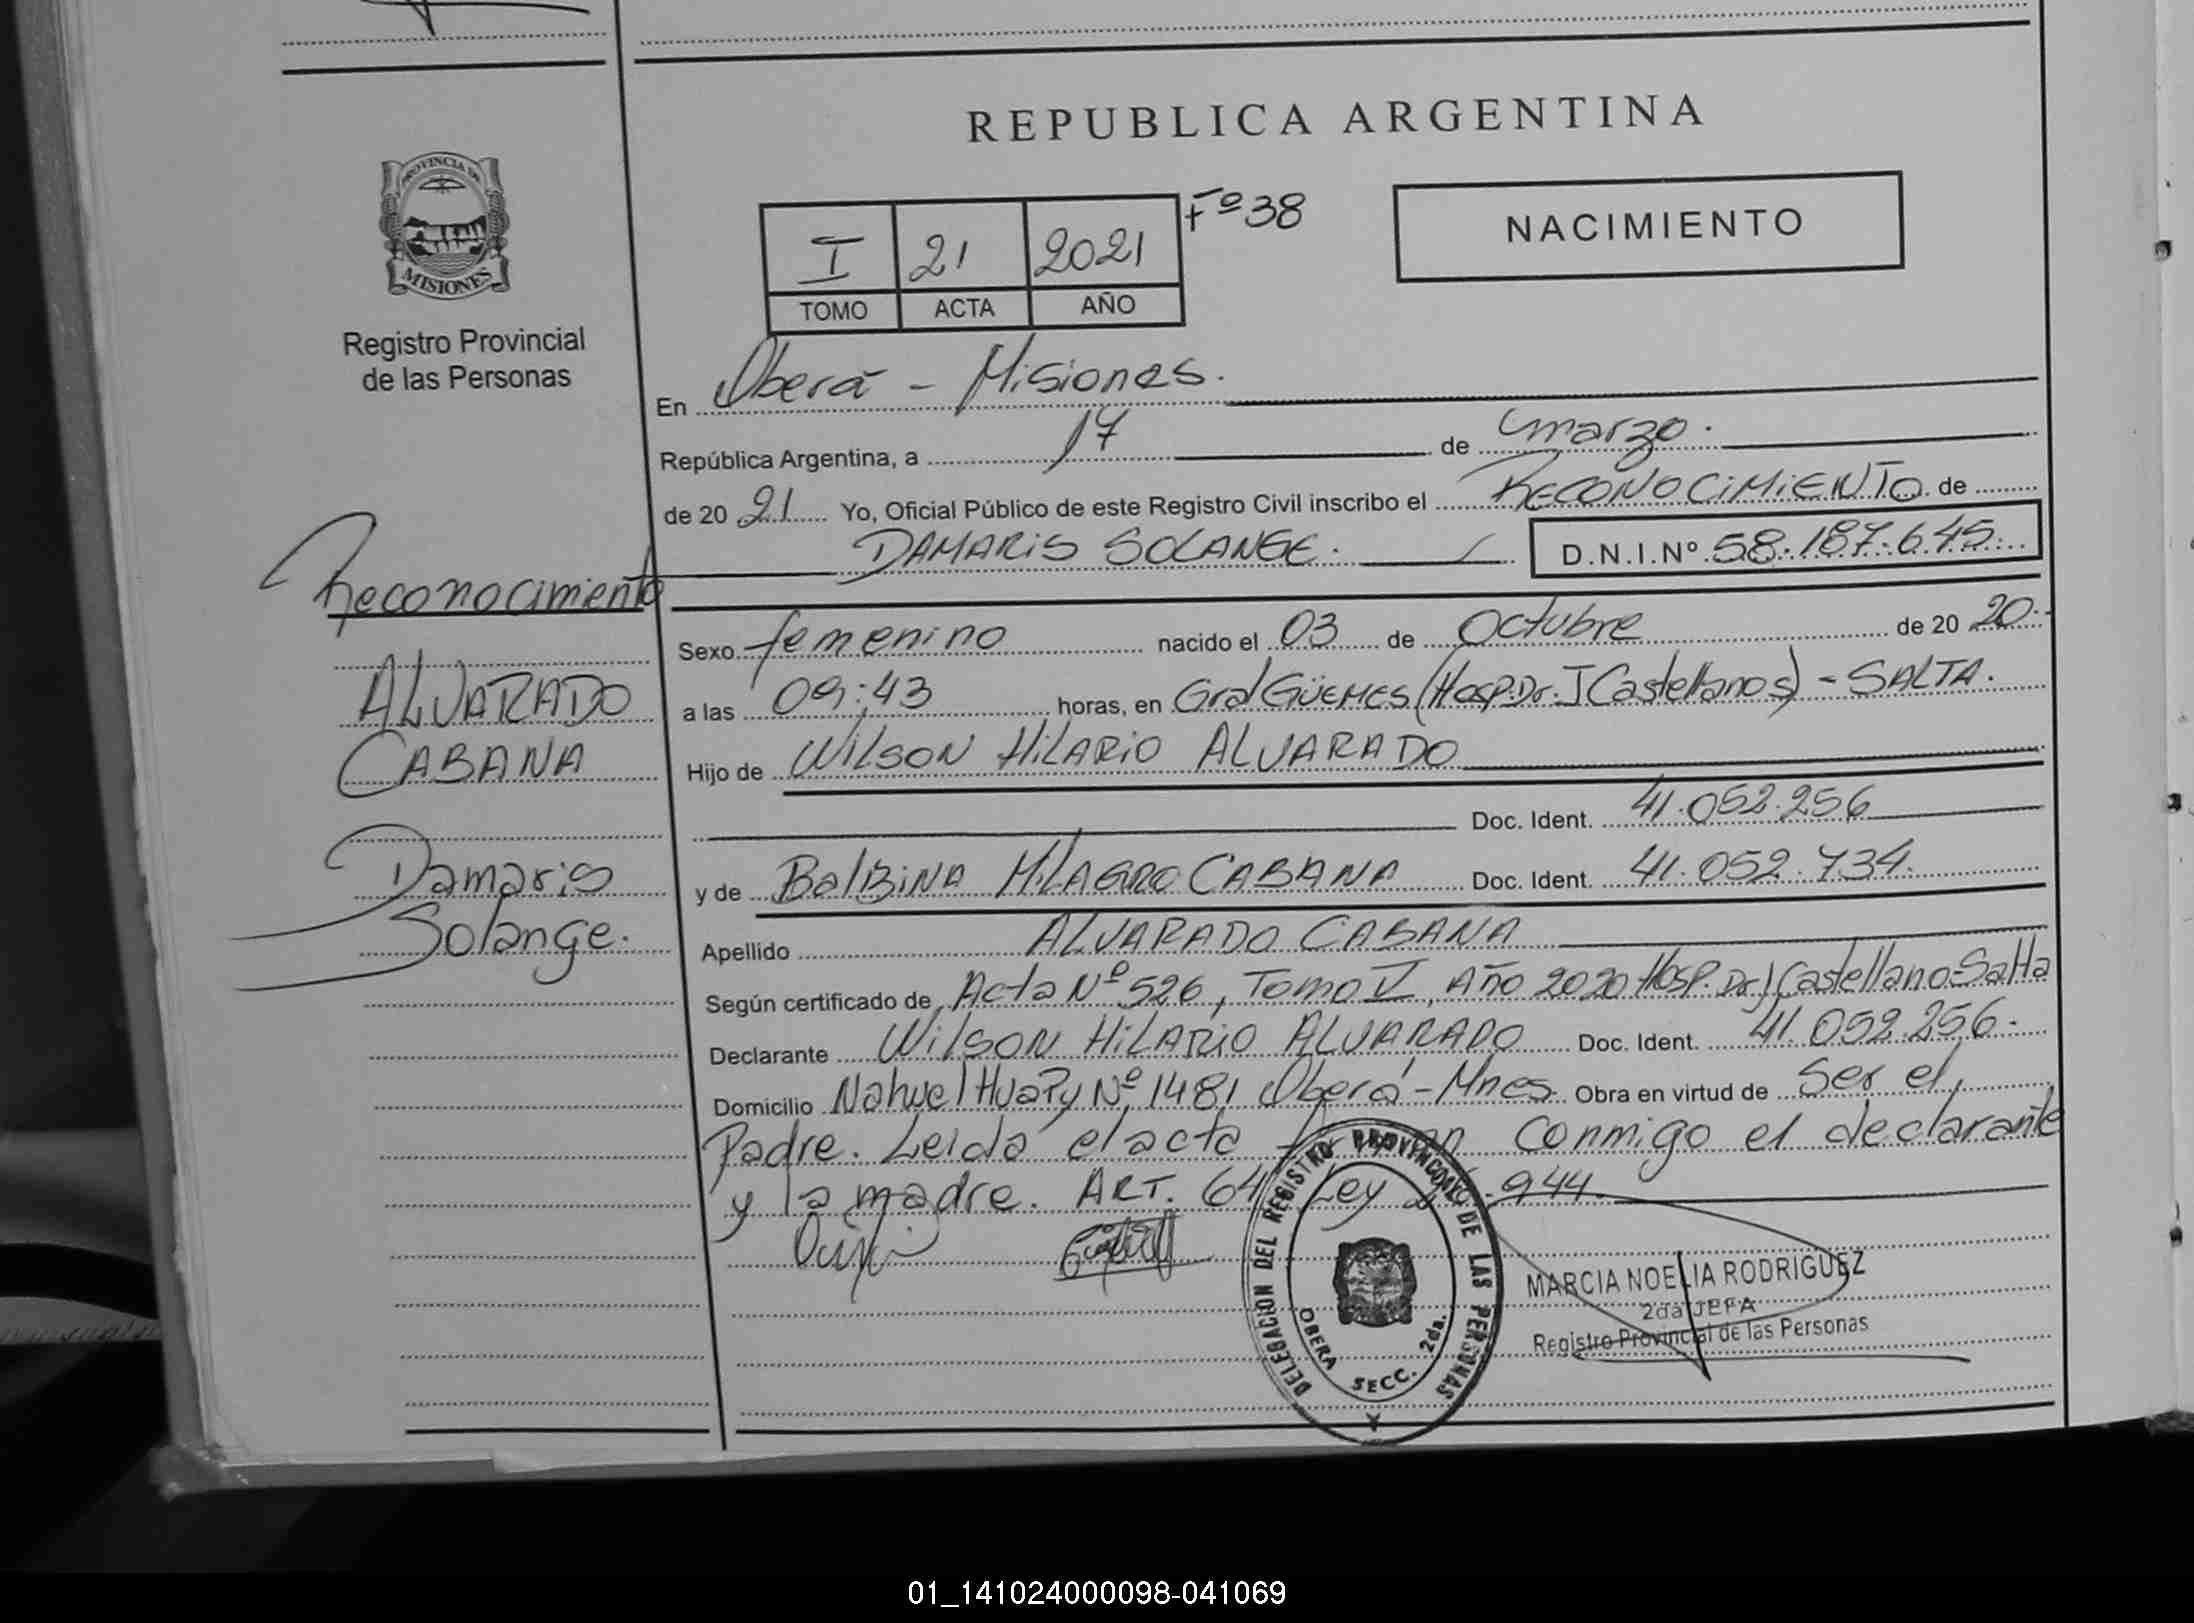 REPUBLICA ARGENTINA
PROVINCIA DE
MISIONES
Registro Provincial
de las Personas
I 21 2021 Fº 38
TOMO ACTA AÑO
NACIMIENTO
En Oberá - Misiones.
República Argentina, a 17 de marzo.
de 20 21 Yo, Oficial Público de este Registro Civil inscribo el RECONOCIMIENTO de
DAMARIS SOLANGE. D.N.I.Nº 58.187.645
Reconocimiento
ALVARADO
CABANA
Damaris
Solange.
Sexo femenino nacido el 03 de Octubre de 20 20
a las 09:43 horas, en Gral GÜEMES (Hosp. Dr. J Castellanos) - SALTA.
Hijo de WILSON HILARIO ALVARADO
Doc. Ident. 41.052.256
y de BalBiNA MILAGRO CABANA Doc. Ident. 41.052.734.
Apellido ALVARADO CABANA
Según certificado de Acta Nº 526, Tomo V, Año 2020 Hosp. Dr J Castellano-Salta
Declarante WILSON HILARIO ALVARADO Doc. Ident. 41.052.256.
Domicilio Nahuel Huapy Nº 1481 Oberá - Mnes. Obra en virtud de Ser el
Padre. Leida el acta conmigo el declarante
y la madre. ART. 64 Ley .944.
DELEGACION DEL REGISTRO PROVINCIAL DE LAS PERSONAS
OBERA SECC. 2da.
MARCIA NOELIA RODRIGUEZ
2da JEFA
Registro Provincial de las Personas
01_141024000098-041069